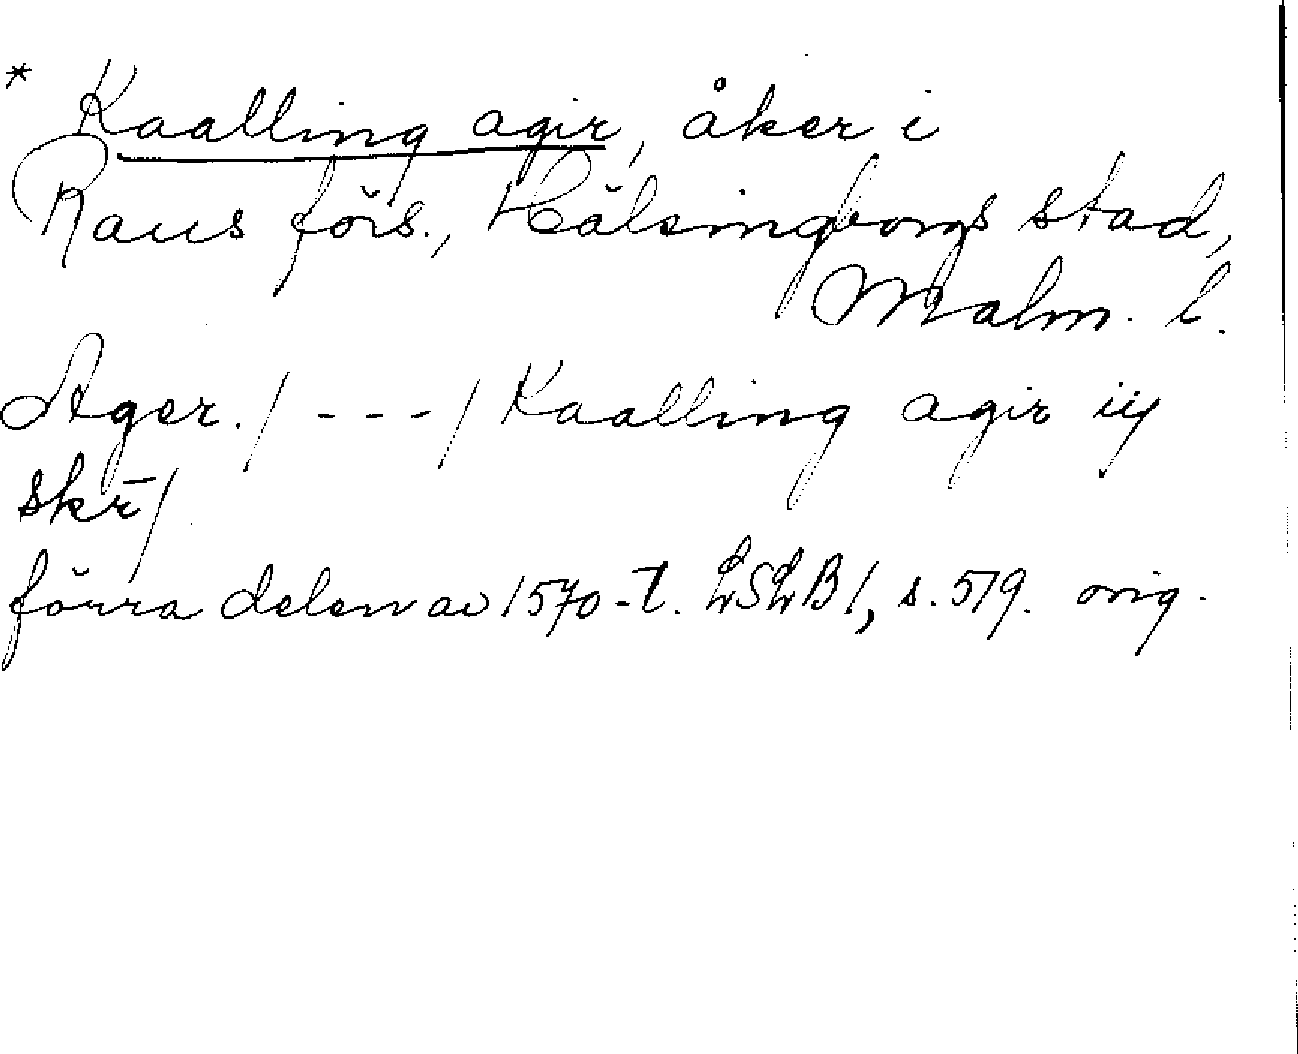 * Kaalling agir, åker i
Raus förs., Hälsingborgs stad,
Malm. l.
Ager. / - - - / Kaalling agir iij
skr̄/
förra delen av 1570-t. LSLB 1, s. 579. orig.